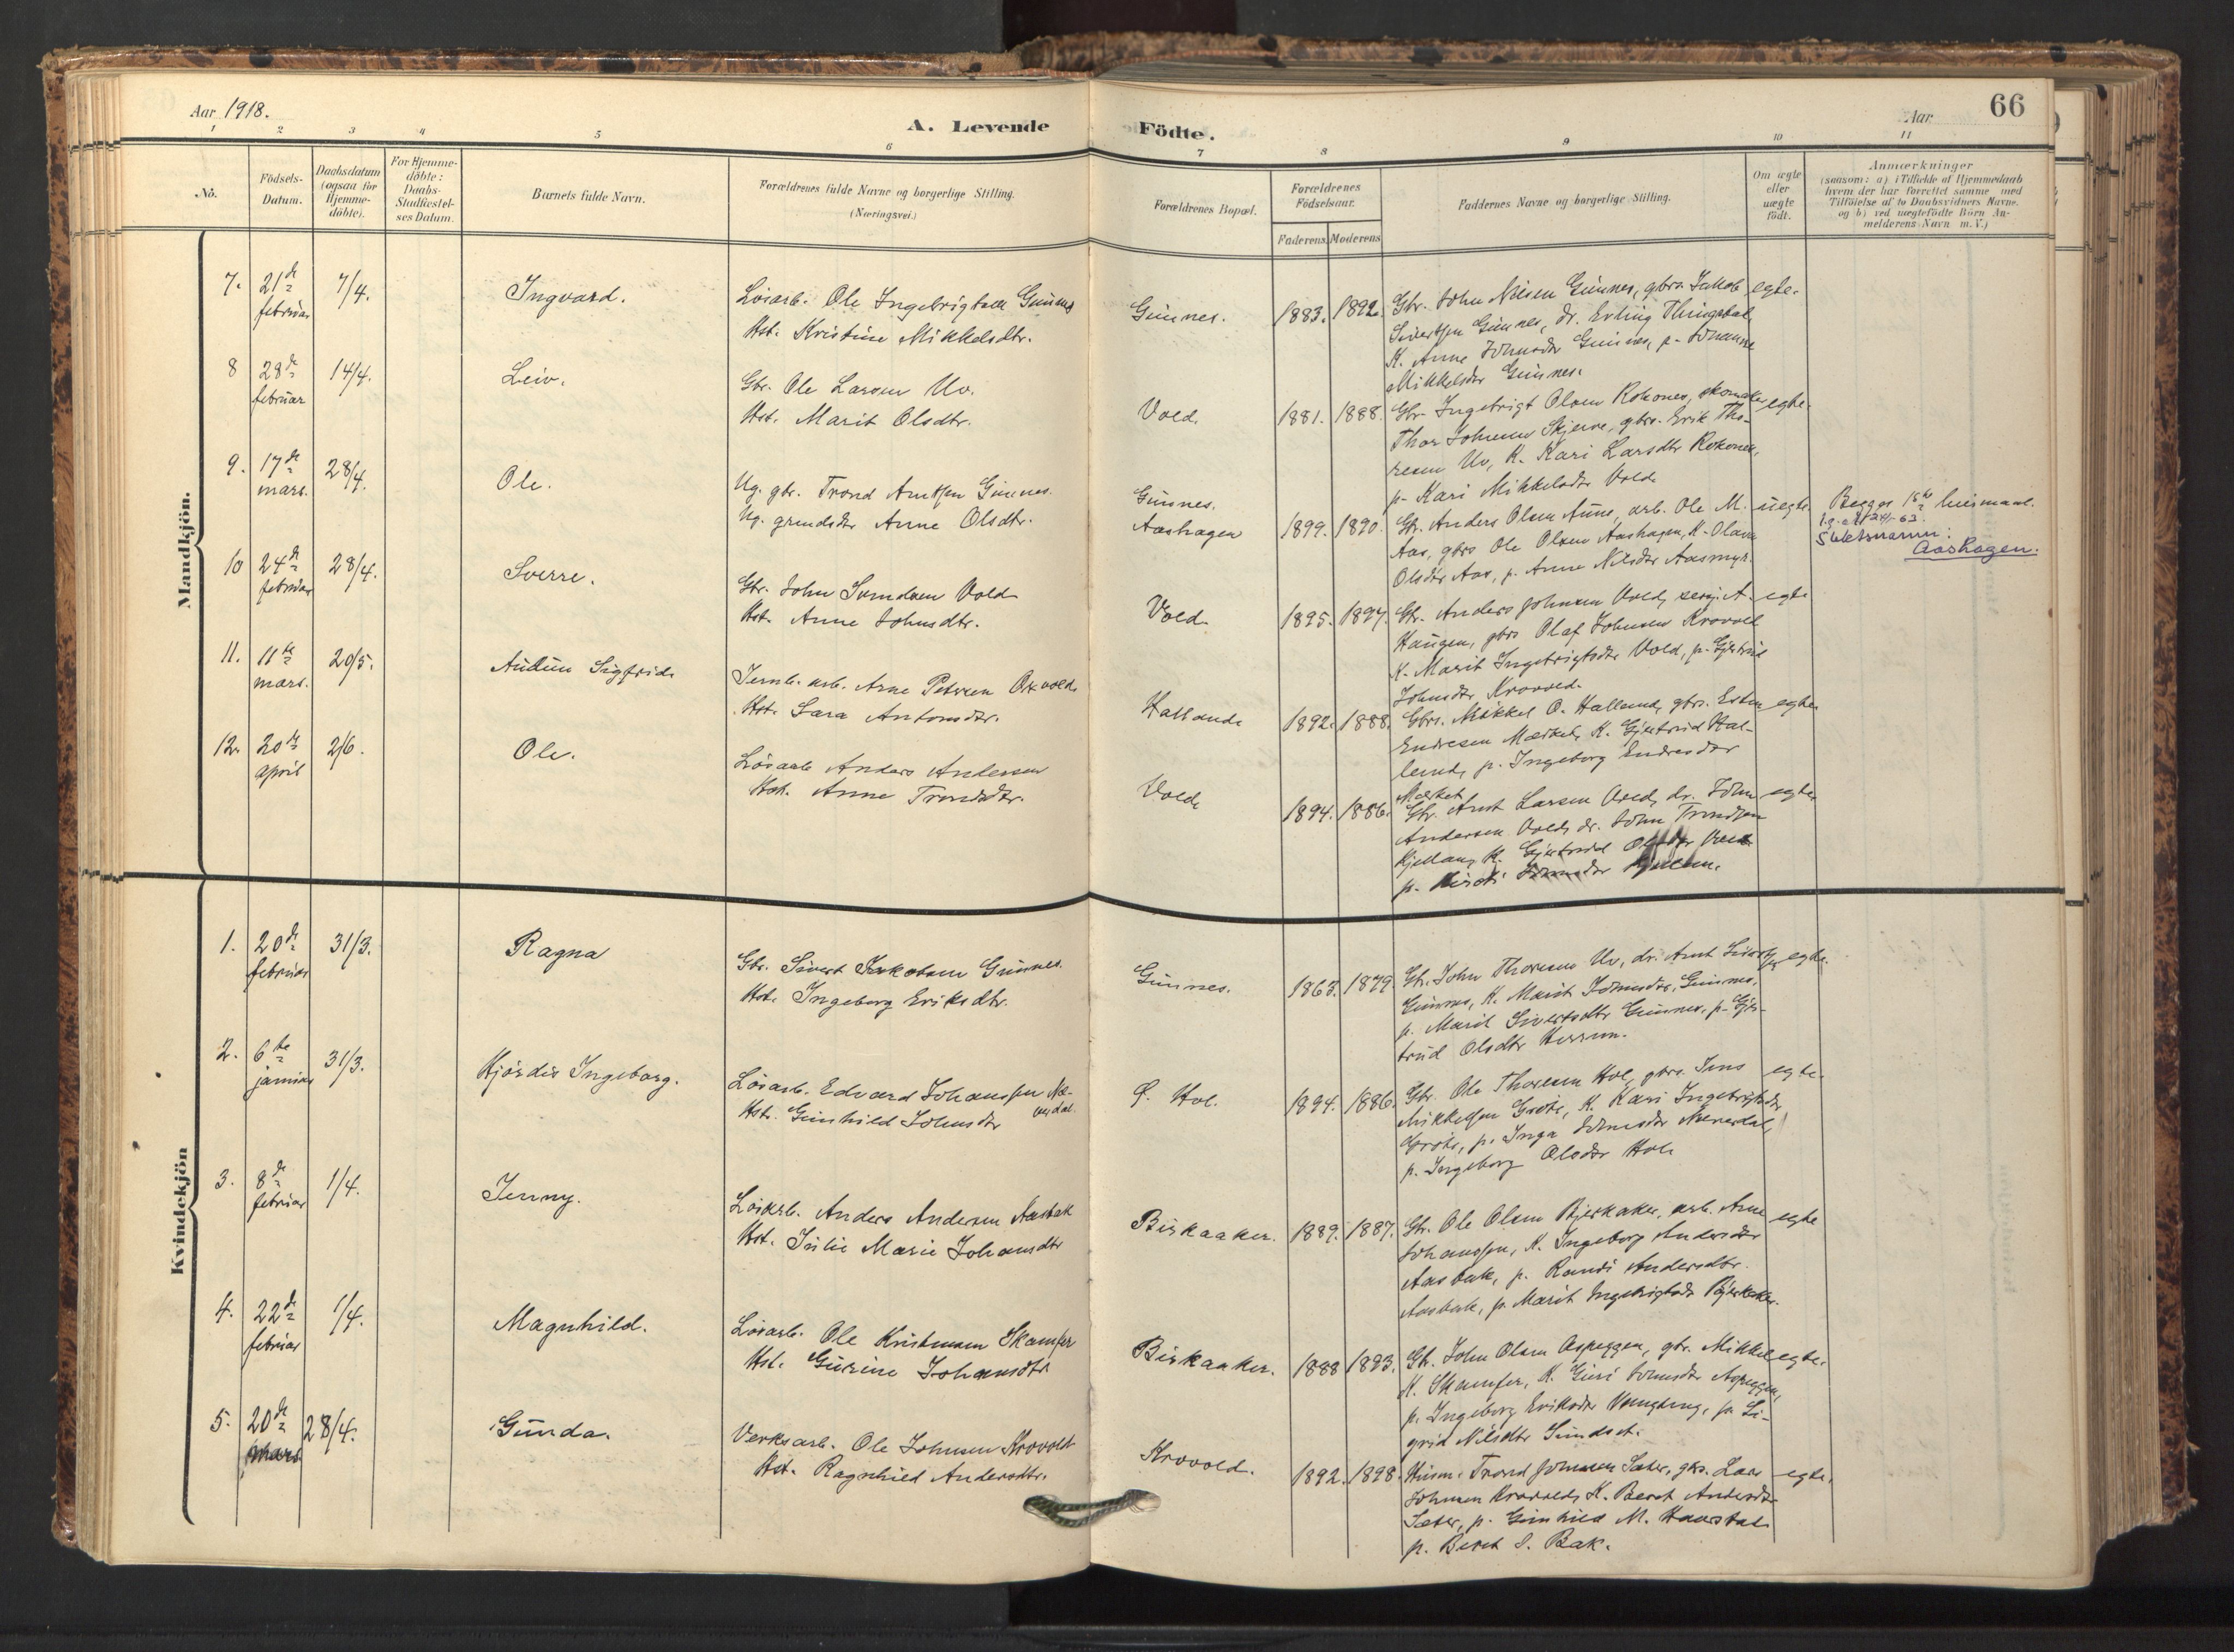 Aar 1918.
A. Levende Födte.
Aar 66
1 2 3 4 5 6 7 8 9 10 11
No.
Födsels-Datum.
Daabsdatum (ogsaa for Hjemme-döbte).
For Hjemme-döbte: Daabs-Stadfæstel-ses Datum.
Barnets fulde Navn.
Forældrenes fulde Navne og borgerlige Stilling.
(Næringsvei.)
Forældrenes Bopæl.
Forældrenes Födselsaar.
Faderens. Moderens
Faddernes Navne og borgerlige Stilling.
Om ægte eller uægte födt.
Anmærkninger
(saasom: a) i Tilfælde af Hjemmedaab
hvem der har forrettet samme med
Tilföielse af to Daabsvidners Navne.
og b) ved uægtefödte Börn An-
melderens Navn m.V.)
Mandkjön.
7. 21de februar 7/4. Ingvard.
Lösarb. Ole Ingebrigtsen Gunnes
Hst. Kristine Mikkelsdtr.
Gunnes. 1883. 1892.
Gbr. John Nilsen Gunnes, gbrs. Jakob
Sivertsen Gunnes, dr. Erling Thingstal
K. Anne Johnsdtr Gunnes, p. Johanne
Mikkelsdtr Gunnes.
egte.
8 28de februar 14/4. Leiv.
Gbr. Ole Larsen Uv.
Hst. Marit Olsdtr.
Vold. 1881. 1888.
Gbr. Ingebrigt Olsen Rokones, skomaker
Thor Johnsen Skjerve, gbrs. Erik Tho-
resen Uv, K. Kari Larsdtr Rokones,
p. Kari Mikkelsdtr Vold.
egte.
9. 17de mars. 28/4. Ole.
Ug. gbr. Trond Arntsen Gunnes.
Ug. grmdsdtr Anne Olsdtr.
Gunnes.
Aashagen 1899. 1890.
Gbr. Anders Olsen Aune, arb. Ole M.
Aas, gbrs Ole Olsen Aashagen, K. Olava
Olsdtr Aas, p. Anne Nilsdtr Aasmyr.
uegte.
Begges 1ste leiermaal.
Slektsnavn:
Aashagen.
10 24de februar 28/4. Sverre.
Gbr. John Svendsen Vold
Hst. Anne Johnsdtr.
Vold 1895. 1897.
Gbr. Anders Johnsen Vold, serj. A.
Haugen, gbrs Olaf Johnsen Krovold
K. Marit Ingebrigtsdtr Vold, p. Gjertrud
Johnsdtr Krovold.
egte
11. 11te mars. 20/5. Audun Sigfrid.
Jernb. arb. Arne Petersen Oxvold.
Hst. Sara Antonsdtr.
Halland. 1892. 1888.
Gbrs. Mikkel O. Halland, gbrs. Esten
Endresen Mærket, K. Gjertrud Hal-
land, p. Ingeborg Endresdtr
Mærket
egte
12. 20de april 2/6. Ole.
Lösarb Anders Andersen
Hst. Anne Trondsdtr.
Vold. 1894. 1886.
Gbr. Arnt Larsen Vold, dr. John
Andersen Vold, dr. John Trondsen
K. Gjertrud Olsdtr Vold
p. Kirsti
egte
Kvindekjön
1. 20de februar 31/3. Ragna
Gbr. Sivert Jakobsen Gunnes.
Hst. Ingeborg Eriksdtr.
Gunnes. 1863. 1879.
Gbr. John Thoresen Uv, dr. Arnt Sivertsen
Gunnes, K. Marit Johnsdtr. Gunnes,
p. Marit Sivertsdtr Gunnes, p. Gjer-
trud Olsdtr
egte.
2. 6te januar 31/3. Hjördis Ingeborg.
Lösarb. Edvard Johansen Næ-
verdal.
Hst. Gunhild Johnsdtr
Ø. Hol. 1894. 1886.
Gbr. Ole Thoresen Hol, gbrs. Jens
Mikkelsen Gröte, K. Kari Ingebrigtsdtr
Gröte, p. Inga Johnsdtr Næverdal,
p. Ingeborg Olsdtr Hol.
egte.
3. 8de februar 1/4. Jenny.
Lösarb. Anders Andersen Aasbak
Hst. Julie Marie Johansdtr
Birkaaker. 1889. 1887.
Gbr. Ole Olsen Bjerkaker, arb. Arne
Johansen, K. Ingeborg Andersdtr
Aasbak, p. Randi Andersdtr.
Aasbak, p. Marit Ingebrigtsdtr Bjerkaker.
egte
4. 22de februar 1/4. Magnhild.
Lösarb. Ole Kristensen Skamfer
Hst. Gurine Johansdtr
Birkaaker. 1888 1893.
Gbr. John Olsen Aspeggen, gbr. Mikkel
K. Skamfer, K. Guri Johnsdtr Aspeggen,
p. Ingeborg Eriksdtr p. Si-
grid Nilsdtr Sundset.
egte.
5. 20de mars 28/4. Gunda.
Verksarb. Ole Johnsen Krovold
Hst. Ragnhild Andersdtr.
Krovold. 1892. 1898.
Husm. Trond Johnsen Sæter, gbs. Lars
Johnsen Krovold, K. Beret Andersdtr
Sæter, p. Gunhild M. Haarstad
p. Beret S. Bak.
egte.